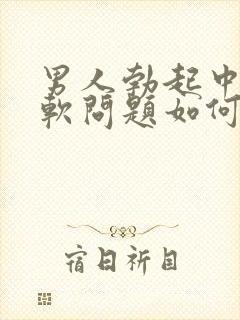 男人勃起中
軟問題如何
宿日祈目